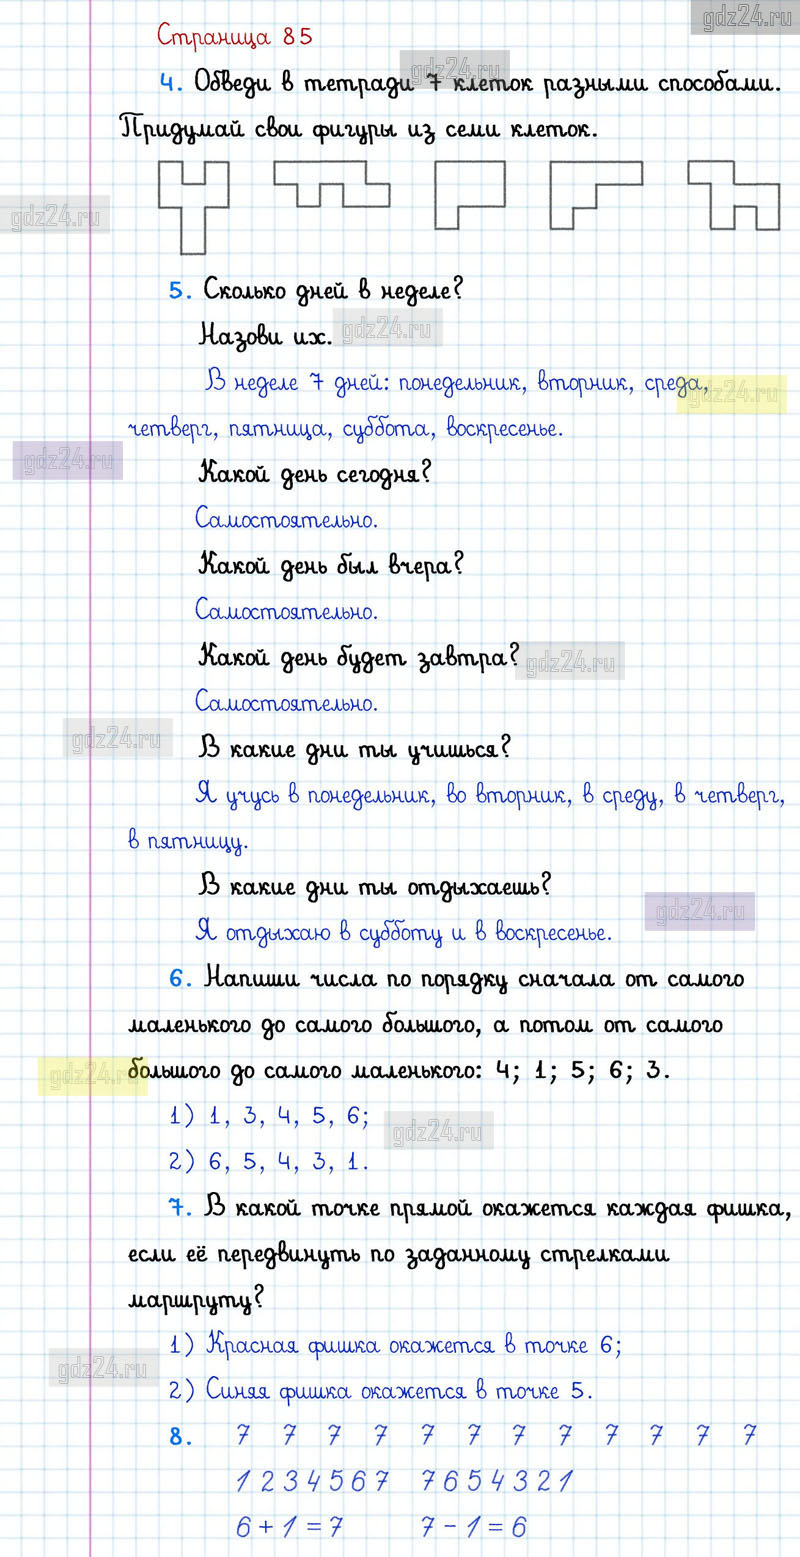 gdz24.ru
Страница 85
gdz24.ru
4. Обведи в тетради 7 клеток разными способами.
Придумай свои фигуры из семи клеток.
gdz24.ru
5. Сколько дней в неделе?
Назови их.
gdz24.ru
В неделе 7 дней: понедельник, вторник, среда,
gdz24.ru
четверг, пятница, суббота, воскресенье.
gdz24.ru
Какой день сегодня?
Самостоятельно.
Какой день был вчера?
Самостоятельно.
Какой день будет завтра?
gdz24.ru
Самостоятельно.
gdz24.ru
В какие дни ты учишься?
Я учусь в понедельник, во вторник, в среду, в четверг,
в пятницу.
В какие дни ты отдыхаешь?
gdz24.ru
Я отдыхаю в субботу и в воскресенье.
6. Напиши числа по порядку сначала от самого
маленького до самого большого, а потом от самого
большого до самого маленького: 4; 1; 5; 6; 3.
gdz24.ru
1) 1, 3, 4, 5, 6;
gdz24.ru
2) 6, 5, 4, 3, 1.
7. В какой точке прямой окажется каждая фишка,
если её передвинуть по заданному стрелками
маршруту?
1) Красная фишка окажется в точке 6;
gdz24.ru
2) Синяя фишка окажется в точке 5.
8. 7 7 7 7 7 7 7 7 7 7 7 7
1 2 3 4 5 6 7 7 6 5 4 3 2 1
6 + 1 = 7 7 - 1 = 6